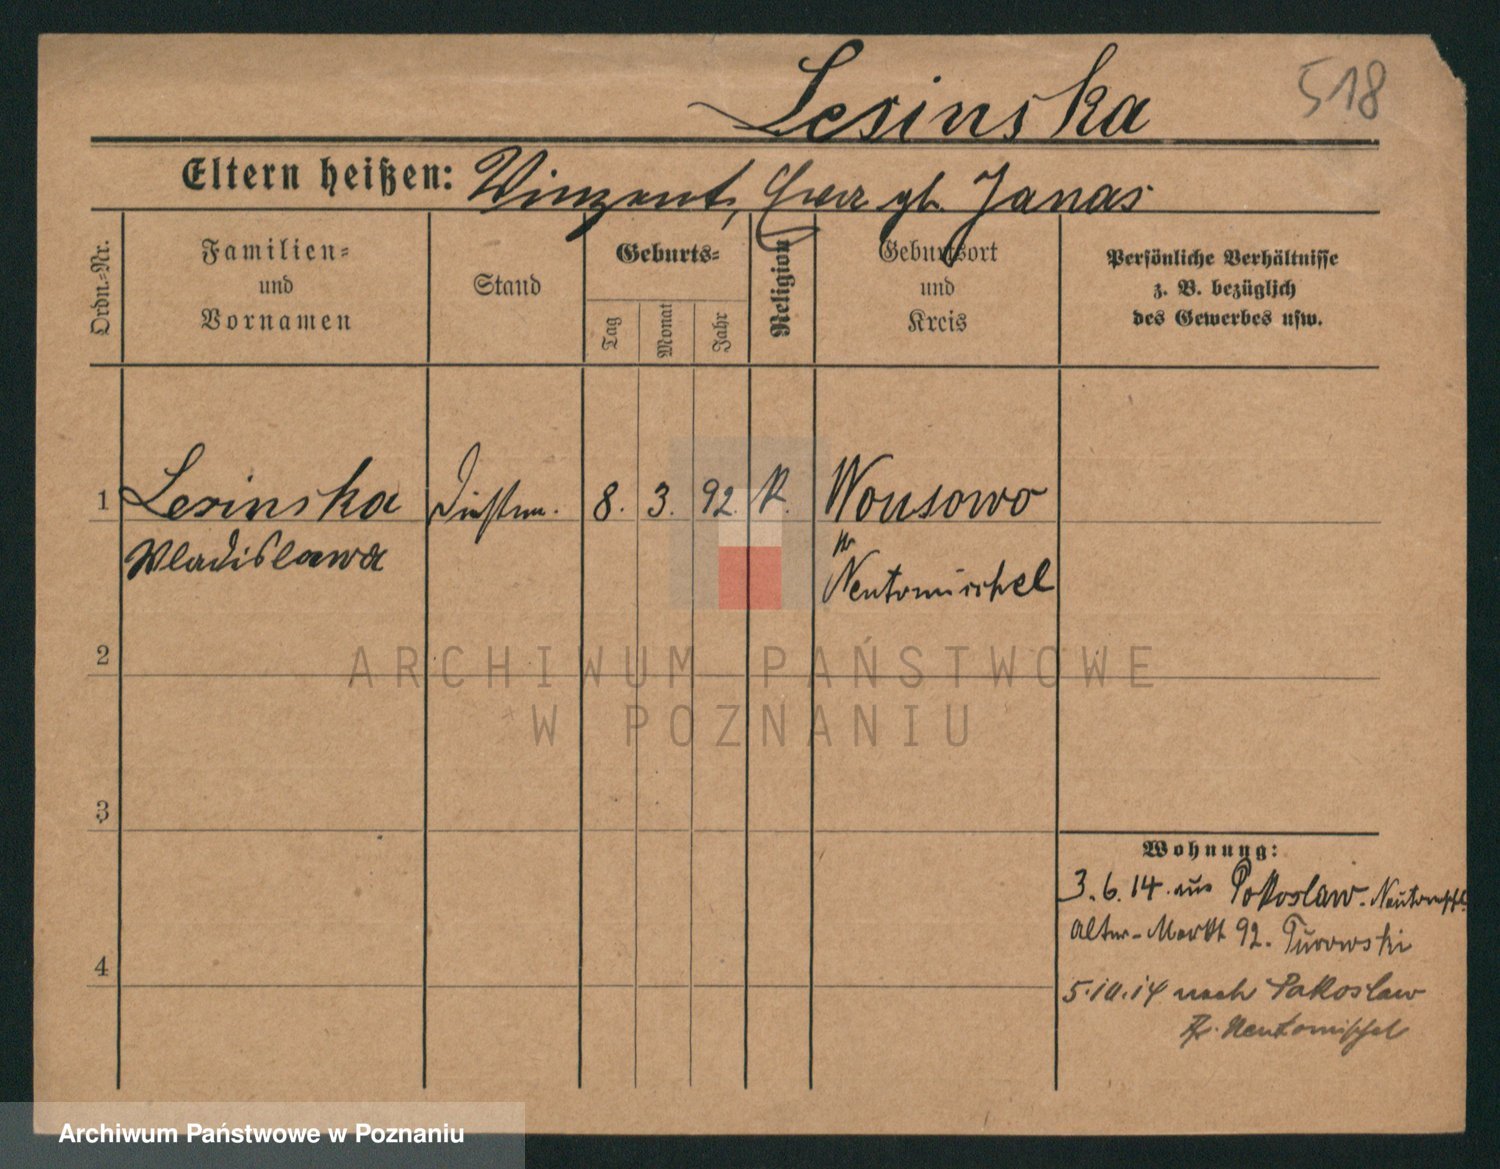 Lesinska 518
Eltern heißen: Vinzent, gb. Janas
Ordn.-Nr.
Familien-
und
Vornamen
Stand
Geburts-
Tag
Monat
Jahr
Religion
Geburtsort
und
Kreis
Persönliche Verhältnisse
z. B. bezüglich
des Gewerbes usw.
1 Lesinska Dienstm. 8. 3. 92. K. Wonsowo
Wladislawa
Kr
Neutomischel
2
3
4
Wohnung:
3.6.14 aus Pakoslaw-Neutomschl.
Alter-Markt 92. Turowski
5.10.14 nach Pakoslaw
Kr. Neutomischel
ARCHIWUM PAŃSTWOWE
W POZNANIU
Archiwum Państwowe w Poznaniu